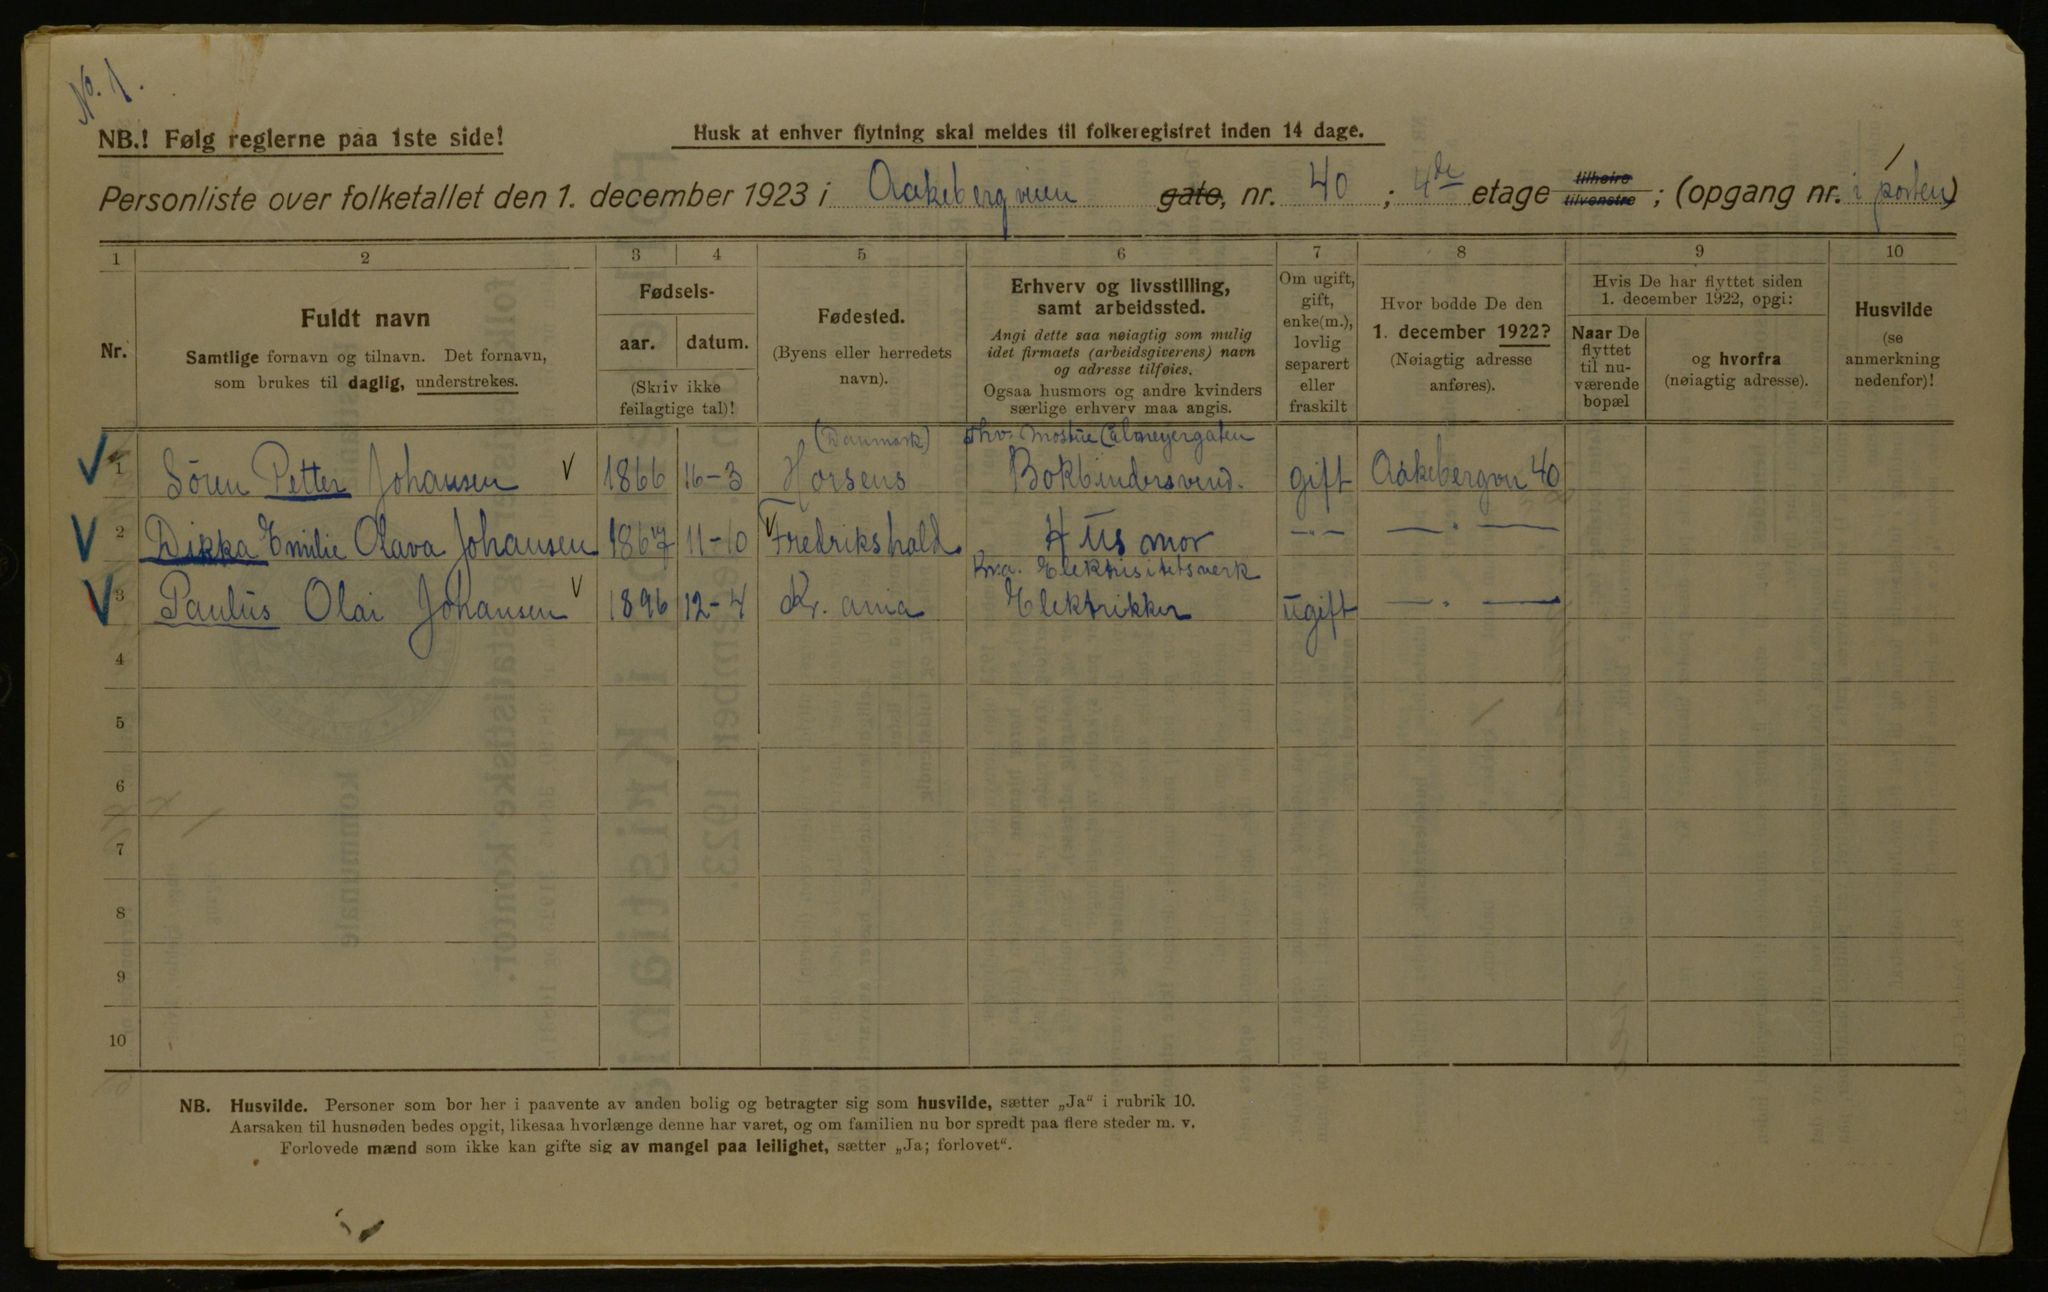 No. 1.
NB.! Følg reglerne paa 1ste side!
Husk at enhver flytning skal meldes til folkeregistret inden 14 dage.
Personliste over folketallet den 1. december 1923 i Aakebergveien gate, nr. 40 ; 4de etage tilhøire tilvenstre ; (opgang nr. 1 i porten)
1 2 3 4 5 6 7 8 9 10
Nr.
Fuldt navn
Samtlige fornavn og tilnavn. Det fornavn,
som brukes til daglig, understrekes.
Fødsels-
aar. datum.
(Skriv ikke
feilagtige tal)!
Fødested.
(Byens eller herredets
navn).
Erhverv og livsstilling,
samt arbeidssted.
Angi dette saa nøiagtig som mulig
idet firmaets (arbeidsgiverens) navn
og adresse tilføies.
Ogsaa husmors og andre kvinders
særlige erhverv maa angis.
Om ugift,
gift,
enke(m.),
lovlig
separert
eller
fraskilt
Hvor bodde De den
1. december 1922?
(Nøiagtig adresse
anføres).
Hvis De har flyttet siden
1. december 1922, opgi:
Naar De
flyttet
til nu-
værende
bopæl
og hvorfra
(nøiagtig adresse).
Husvilde
(se
anmerkning
nedenfor)!
(Danmark) Thv. Mostue Calmeyergaten
1 Sören Petter Johansen 1866 16-3 Horsens Bokbindersvend. gift Aakebergvn 40
2 Dikka Emilie Olava Johansen 1867 11-10 Fredrikshald Husmor —"— — " —
Kr.a. Elektrisitetsverk
3 Paulus Olai Johansen 1896 12-4 Kr. ania Elektrikker ugift — " —
4
5
6
7
8
9
10
NB. Husvilde. Personer som bor her i paavente av anden bolig og betragter sig som husvilde, sætter „Ja“ i rubrik 10.
Aarsaken til husnøden bedes opgit, likesaa hvorlænge denne har varet, og om familien nu bor spredt paa flere steder m. v.
Forlovede mænd som ikke kan gifte sig av mangel paa leilighet, sætter „Ja; forlovet“.